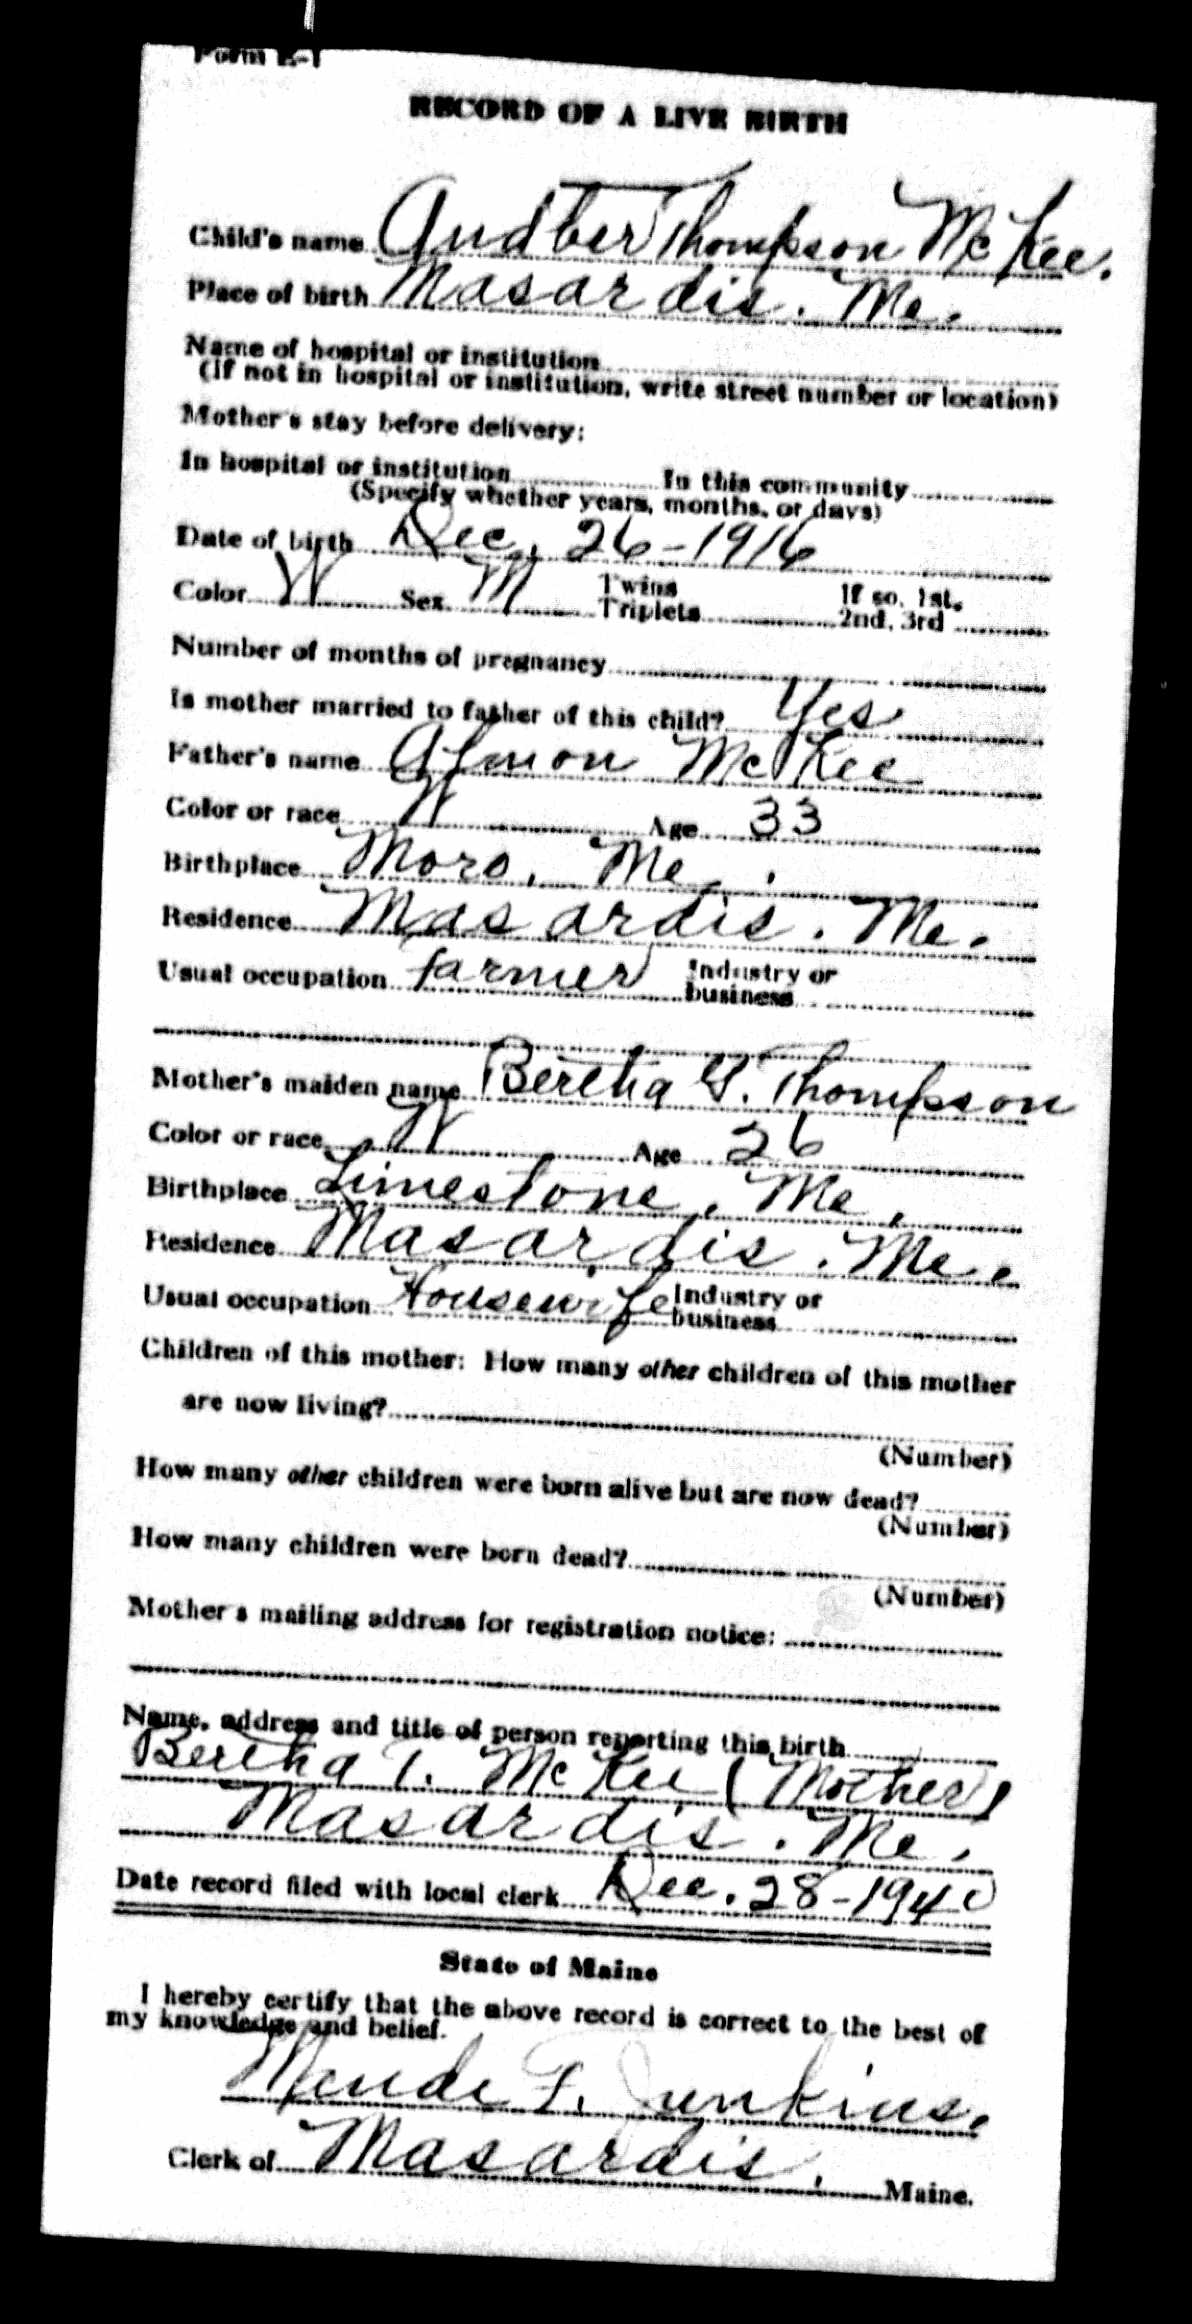 Form E-1
RECORD OF A LIVE BIRTH
Child's name Audber Thompson McKee.
Place of birth Masardis. Me.
Name of hospital or institution
(If not in hospital or institution, write street number or location)
Mother's stay before delivery:
In hospital or institution In this community
(Specify whether years, months, or days)
Date of birth Dec. 26-1916
Color W Sex M Twins Triplets If so, 1st, 2nd, 3rd
Number of months of pregnancy
Is mother married to father of this child? Yes
Father's name Almon McKee
Color or race W Age 33
Birthplace Moro, Me.
Residence Masardis. Me.
Usual occupation farmer Industry or business
Mother's maiden name Beretha G. Thompson
Color or race W Age 26
Birthplace Limestone, Me,
Residence Masardis. Me.
Usual occupation Housewife Industry or business
Children of this mother: How many other children of this mother
are now living?
(Number)
How many other children were born alive but are now dead?
(Number)
How many children were born dead?
(Number)
Mother's mailing address for registration notice:
Name, address and title of person reporting this birth
Beretha T. McKee (Mother)
Masardis. Me.
Date record filed with local clerk Dec. 28-1940
State of Maine
I hereby certify that the above record is correct to the best of
my knowledge and belief.
F. Junkins.
Clerk of Masardis. Maine.